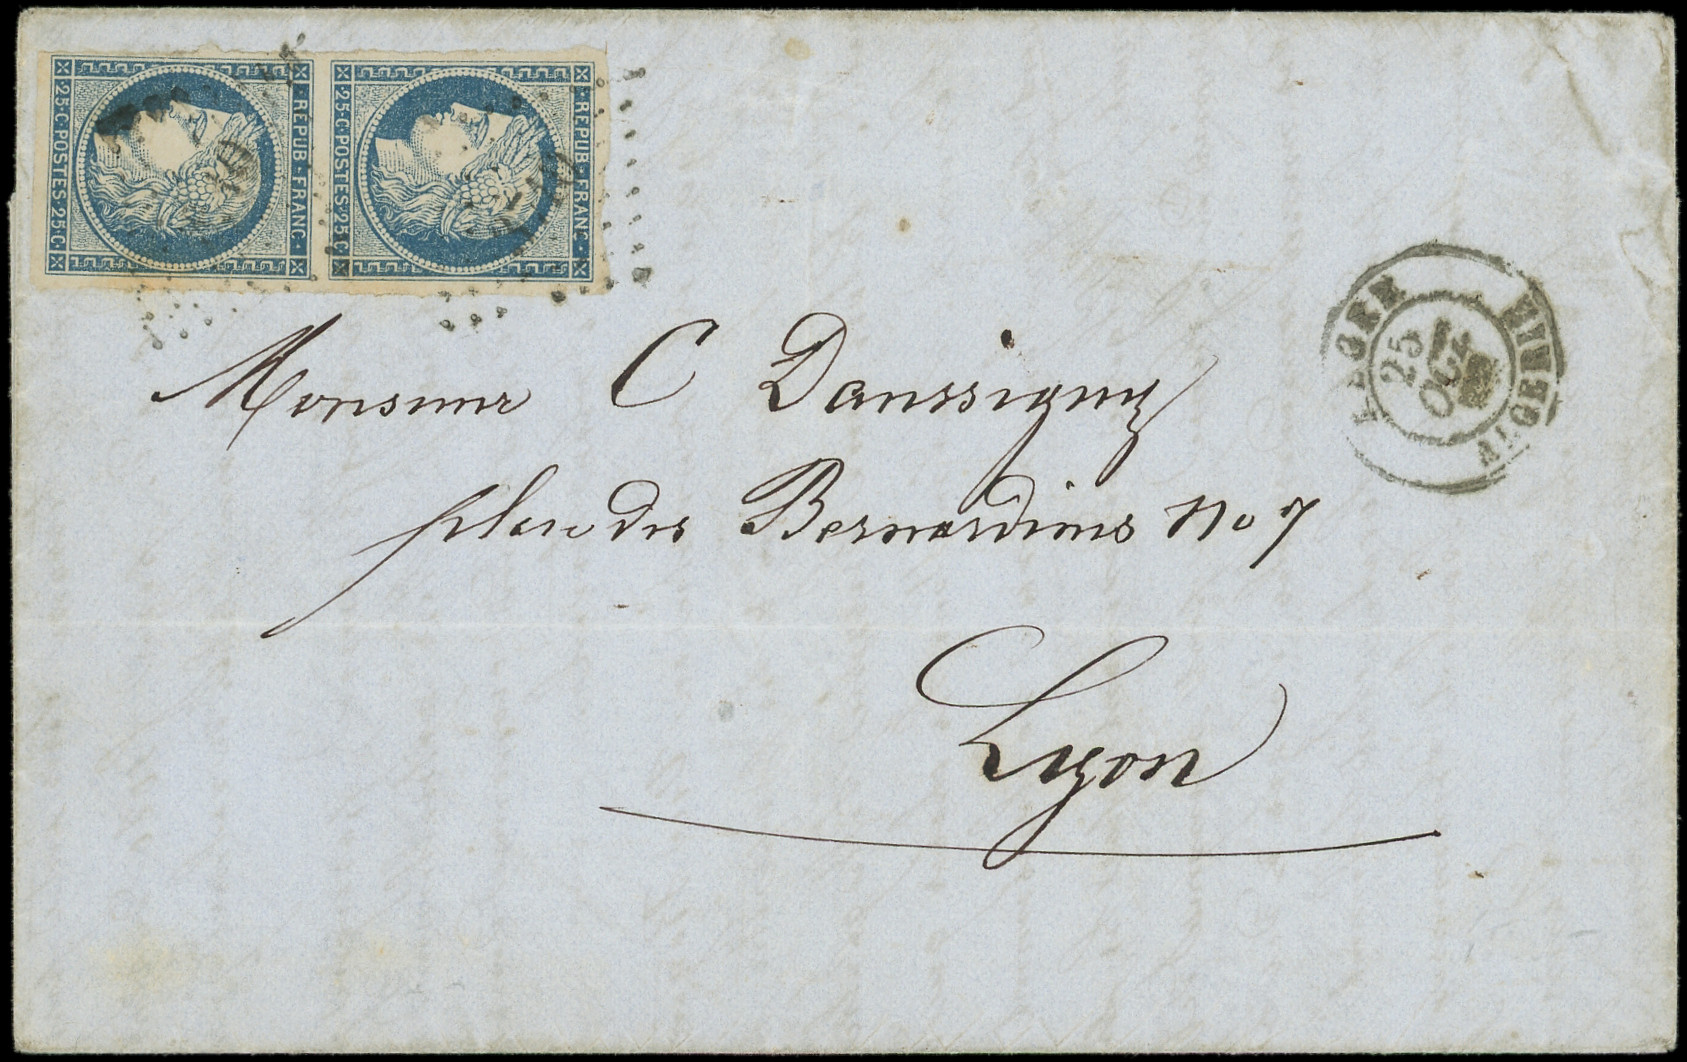 25·C·POSTES·25·C·
·REPUB·FRANC·
25·C·POSTES·25·C·
·REPUB·FRANC·
25
OCT
ALGÉRIE
Monsieur C Danssigny
place des Bernardines No 7
Lyon